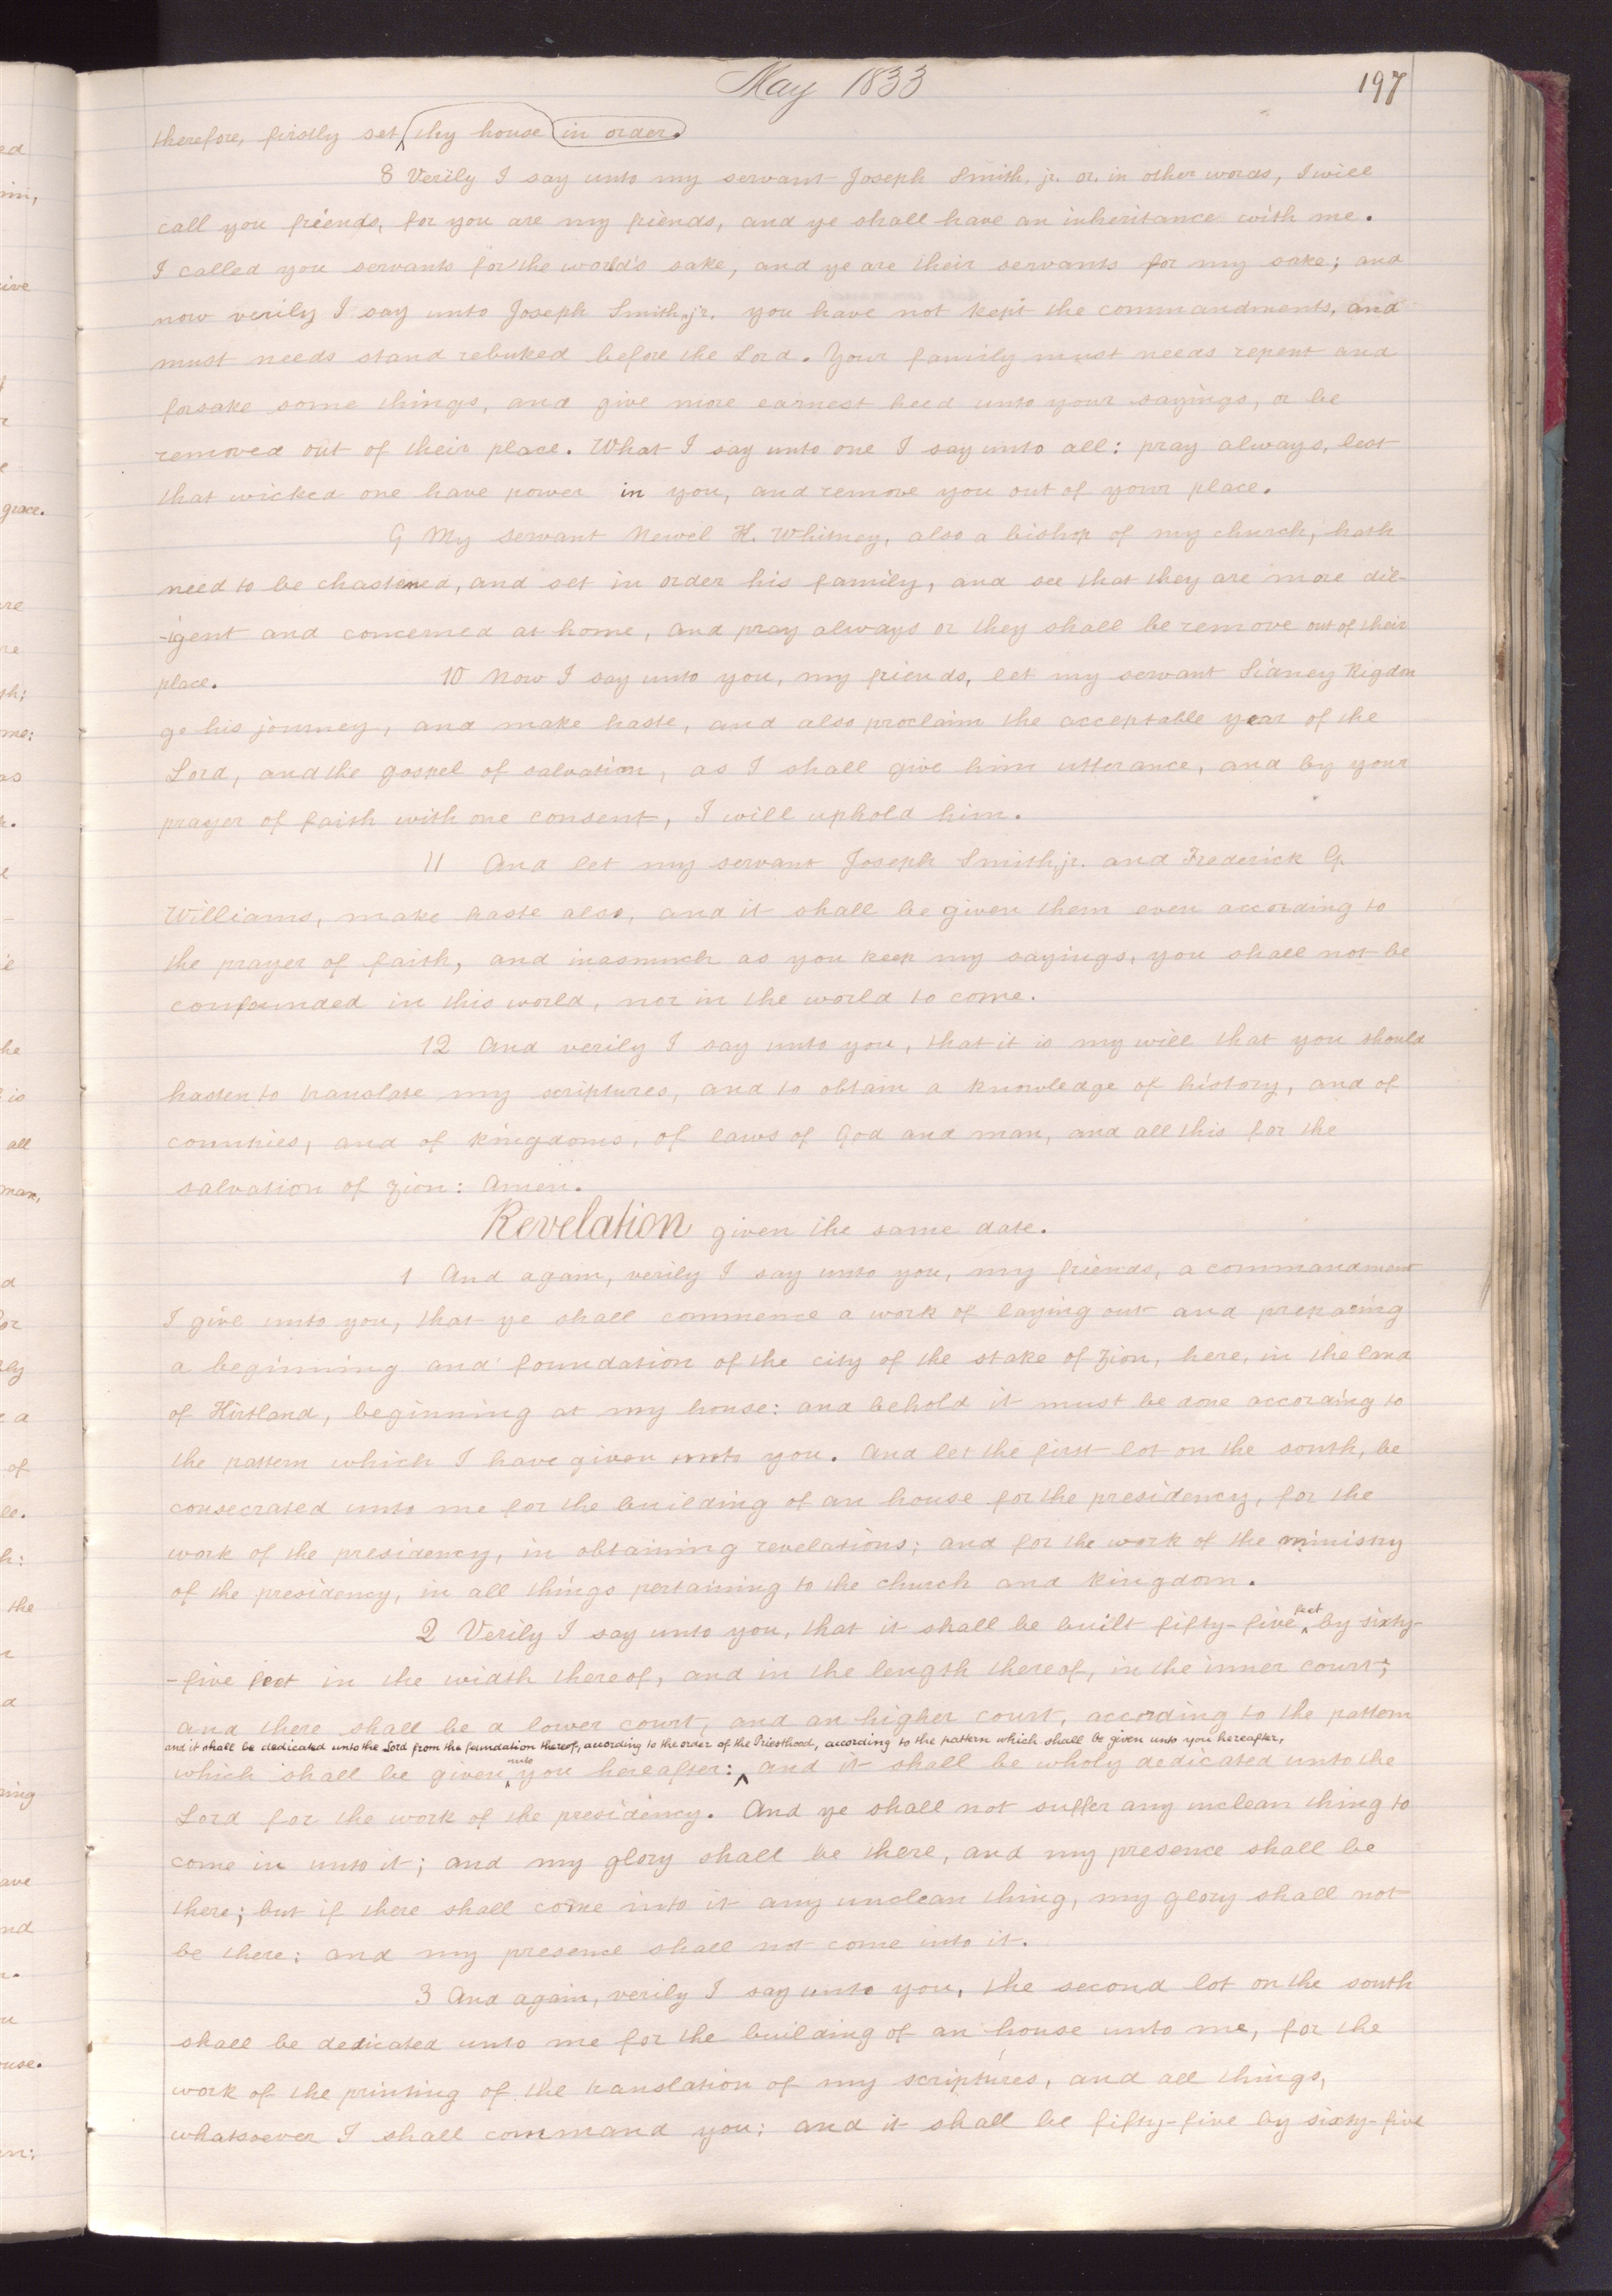 May 1833
197
therefore, firstly set thy house in order.
8 Verily I say unto my servant Joseph Smith, jr. or. in other words, I will
call you friends, for you are my friends, and ye shall have an inheritance with me.
I called you servants for the world's sake, and ye are their servants for my sake; and
now verily I say unto Joseph Smith, jr. you have not kept the commandments, and
must needs stand rebuked before the Lord. Your family must needs repent and
forsake some things, and give more earnest heed unto your sayings, or be
removed out of their place. What I say unto one I say unto all: pray always, lest
that wicked one have power in you, and remove you out of your place.
9 My servant Newel H. Whitney, also a bishop of my church, hath
need to be chastened, and set in order his family, and see that they are more dil-
-igent and concerned at home, and pray always or they shall be remove out of their
place.
10 Now I say unto you, my friends, let my servant Sidney Rigdon
go his journey, and make haste, and also proclaim the acceptable year of the
Lord, and the gospel of salvation, as I shall give him utterance, and by your
prayer of faith with one consent, I will uphold him.
11 And let my servant Joseph Smith, jr. and Frederick G.
Williams, make haste also, and it shall be given them even according to
the prayer of faith, and inasmuch as you keep my sayings, you shall not be
confounded in this world, nor in the world to come.
12 And verily I say unto you, that it is my will that you should
hasten to translate my scriptures, and to obtain a knowledge of history, and of
countries, and of kingdoms, of laws of God and man, and all this for the
salvation of Zion: Amen.
Revelation given the same date.
1 And again, verily I say unto you, my friends, a commandment
I give unto you, that ye shall commence a work of laying out and preparing
a beginning and foundation of the city of the stake of Zion, here, in the land
of Kirtland, beginning at my house: and behold it must be done according to
the pattern which I have given unto you. And let the first lot on the south, be
consecrated unto me for the building of an house for the presidency, for the
work of the presidency, in obtaining revelations; and for the work of the ministry
of the presidency, in all things pertaining to the church and kingdom.
2 Verily I say unto you, that it shall be built fifty-five feet by sixty-
-five feet in the width thereof, and in the length thereof, in the inner court;
and there shall be a lower court, and an higher court, according to the pattern
and it shall be dedicated unto the Lord from the foundation thereof, according to the order of the Priesthood, according to the pattern which shall be given unto you hereafter,
which shall be given unto you hereafter: and it shall be wholy dedicated unto the
Lord for the work of the presidency. And ye shall not suffer any unclean thing to
come in unto it; and my glory shall be there, and my presence shall be
there; but if there shall come into it any unclean thing, my glory shall not
be there: and my presence shall not come into it.
3 And again, verily I say unto you, the second lot on the south
shall be dedicated unto me for the building of an house unto me, for the
work of the printing of the translation of my scriptures, and all things,
whatsoever I shall command you: and it shall be fifty-five by sixty-five